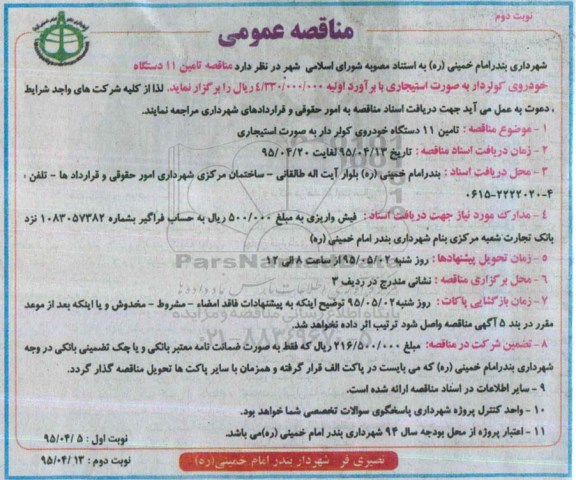 نوبت دوم
مناقصه عمومی
شهرداری بندرامام خمینی (ره) به استناد مصوبه شورای اسلامی شهر در نظر دارد مناقصه تامین ۱۱ دستگاه
خودروی کولردار به صورت استیجاری با برآورد اولیه ۴/۳۳۰/۰۰۰/۰۰۰ ریال را برگزار نماید. لذا از کلیه شرکت های واجد شرایط
، دعوت به عمل می آید جهت دریافت اسناد مناقصه به امور حقوقی و قراردادهای شهرداری مراجعه نمایند.
۱ - موضوع مناقصه : تامین ۱۱ دستگاه خودروی کولر دار به صورت استیجاری
۲ - زمان دریافت اسناد مناقصه : تاریخ ۹۵/۰۴/۱۳ لغایت ۹۵/۰۴/۲۰
۳ - محل دریافت اسناد : بندرامام خمینی (ره) بلوار آیت اله طالقانی - ساختمان مرکزی شهرداری امور حقوقی و قرارداد ها - تلفن ،
۰۶۱۵-۲۲۲۲۰۲۰-۴
۴ - مدارک مورد نیاز جهت دریافت اسناد : فیش واریزی به مبلغ ۵۰۰/۰۰۰ ریال به حساب فراگیر بشماره ۱۰۸۳۰۵۷۳۸۲ نزد
بانک تجارت شعبه مرکزی بنام شهرداری بندر امام خمینی (ره)
۵ - زمان تحویل پیشنهادها : روز شنبه ۹۵/۰۵/۰۲ از ساعت ۸ الی ۱۲
۶ - محل برگزاری مناقصه : نشانی مندرج در ردیف ۳
۷ - زمان بازگشایی پاکات : روز شنبه ۹۵/۰۵/۰۲ توضیح اینکه به پیشنهادات فاقد امضاء - مشروط - مخدوش و یا اینکه بعد از موعد
مقرر در بند ۵ آگهی مناقصه واصل شود ترتیب اثر داده نخواهد شد.
۸ - تضمین شرکت در مناقصه : مبلغ ۲۱۶/۵۰۰/۰۰۰ ریال که فقط به صورت ضمانت نامه معتبر بانکی و یا چک تضمینی بانکی در وجه
شهرداری بندرامام خمینی (ره) که می بایست در پاکت الف قرار گرفته و همزمان با سایر پاکت ها تحویل مناقصه گذار گردد.
۹ - سایر اطلاعات در اسناد مناقصه ارائه شده است.
۱۰ - واحد کنترل پروژه شهرداری پاسخگوی سوالات تخصصی شما خواهد بود.
۱۱ - اعتبار پروژه از محل بودجه سال ۹۴ شهرداری بندر امام خمینی (ره) می باشد.
نوبت اول : ۹۵/۰۴/۵
نوبت دوم : ۹۵/۰۴/۱۳
نصیری فر شهردار بندر امام خمینی (ره)
ParsNamadData
پایگاه اطلاع رسانی مناقصه و مزایده